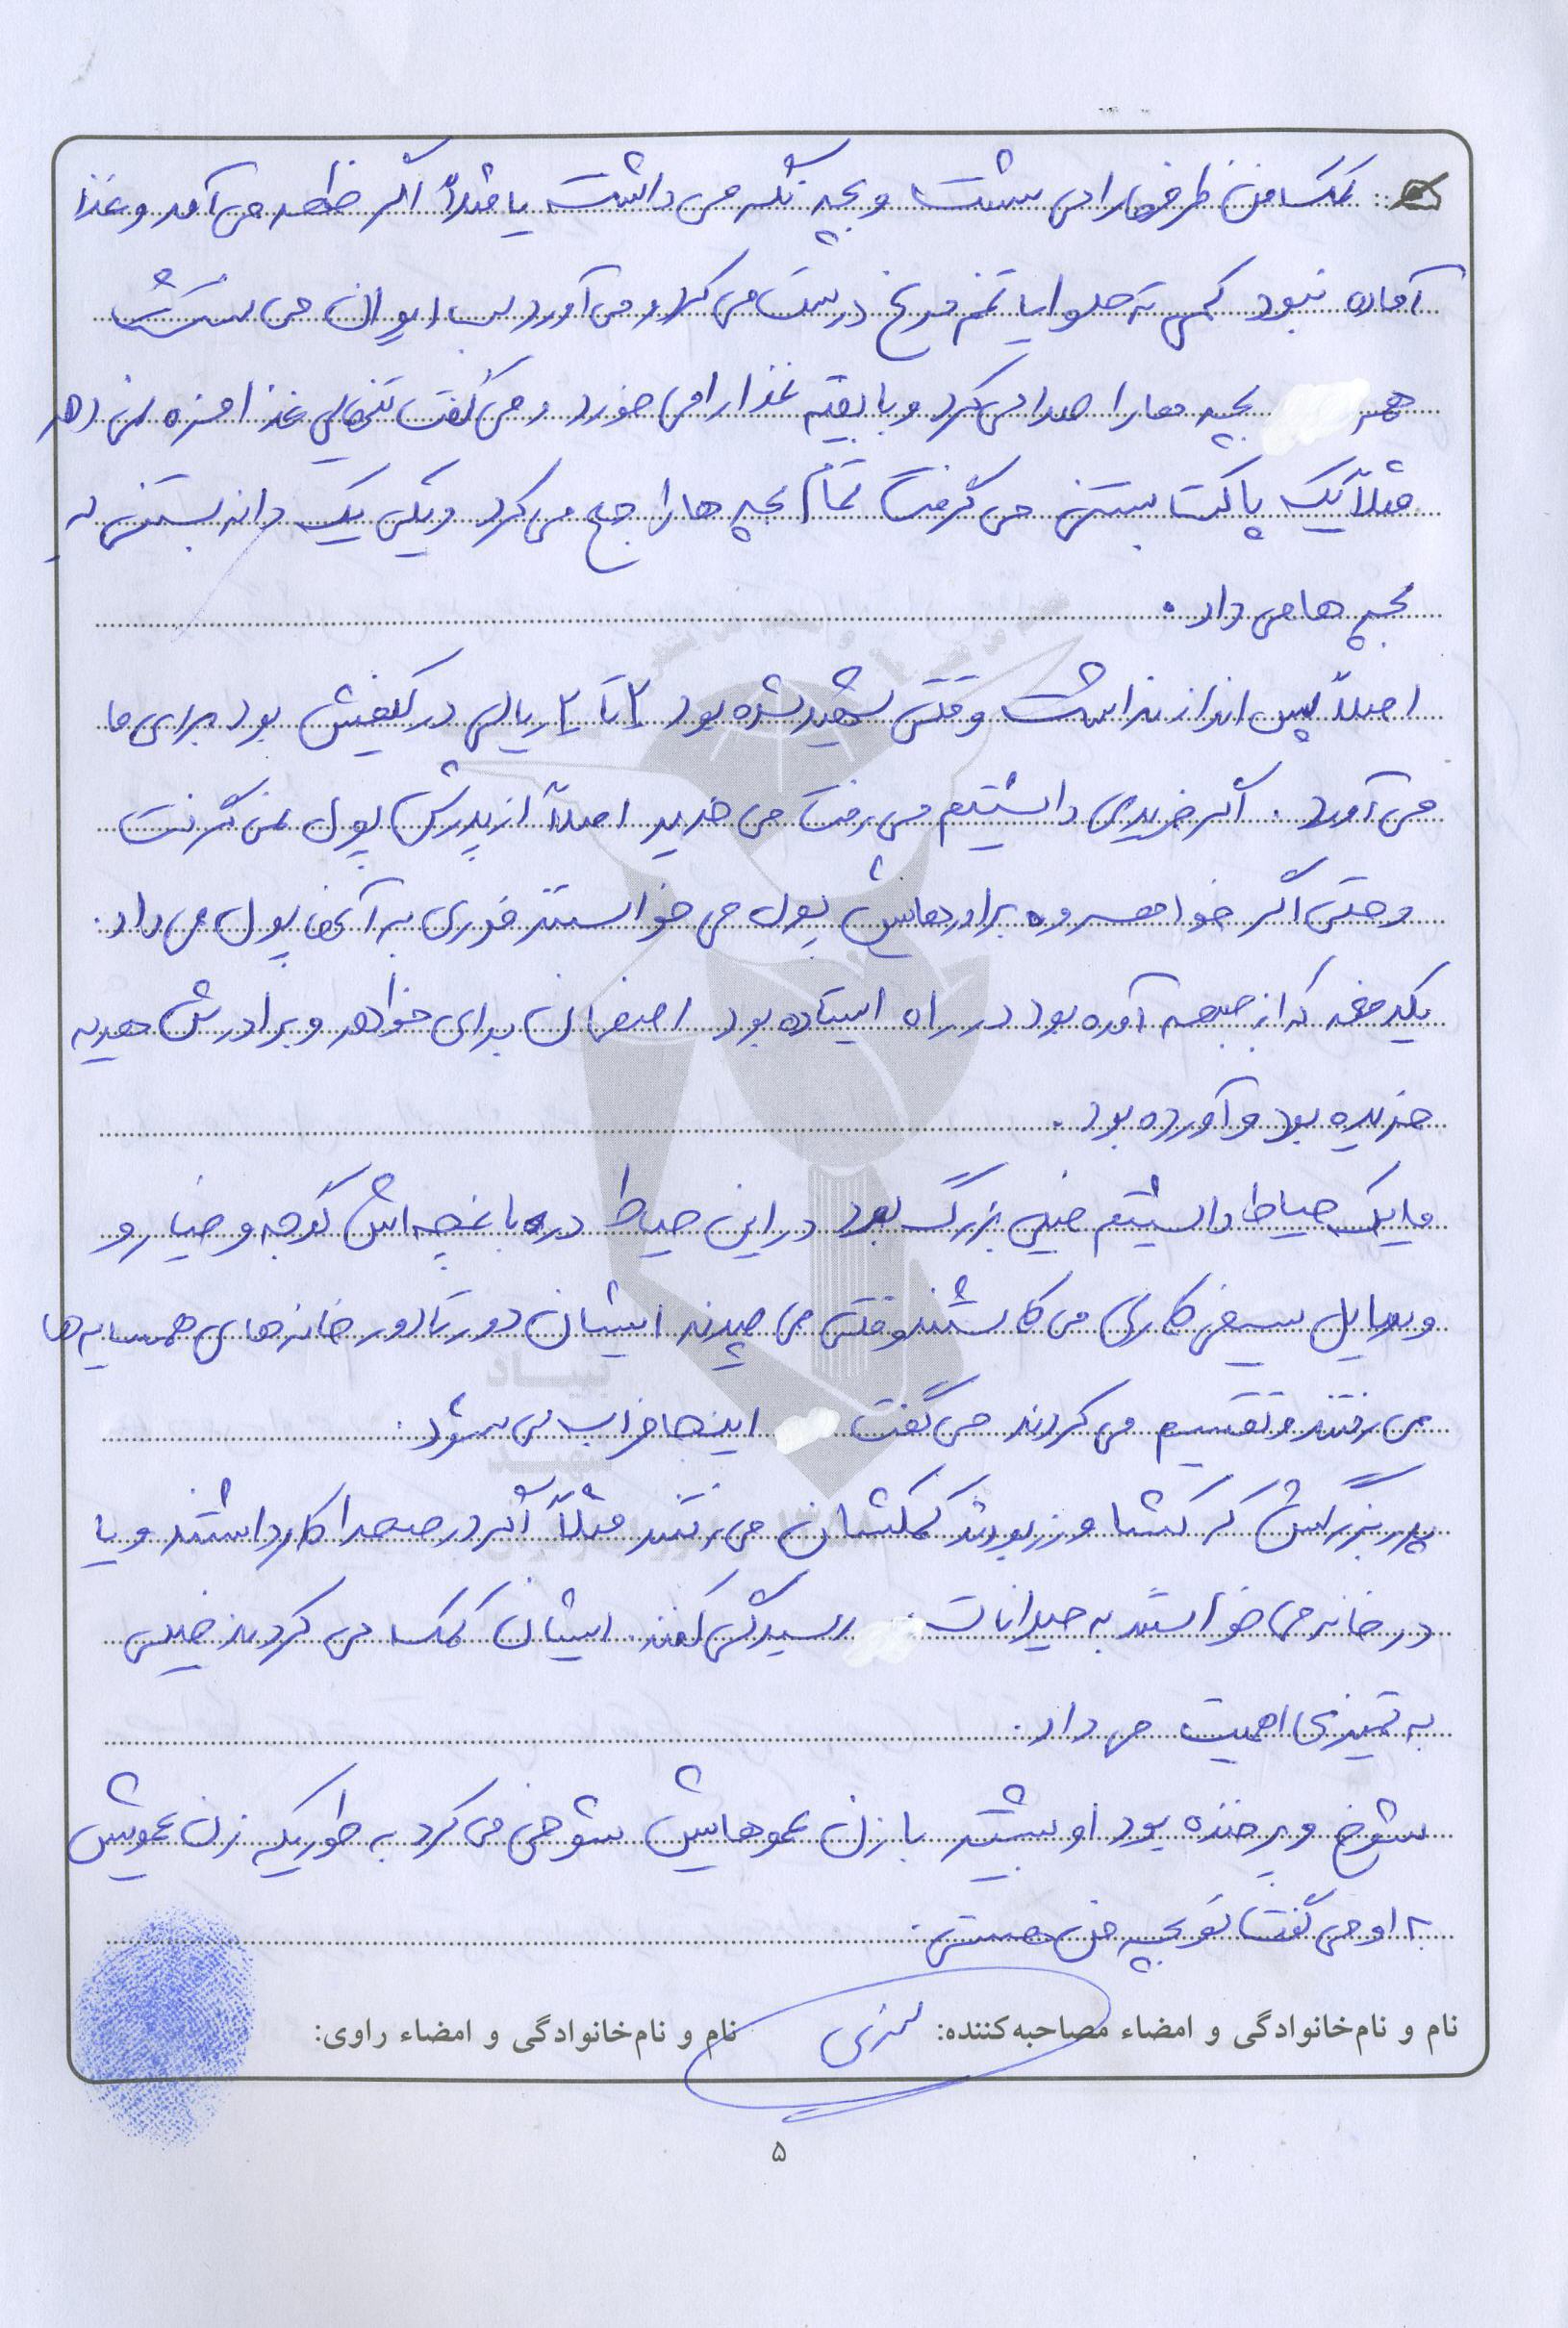 کمک من ظرفها را می شست و بچه نگه می داشت یا مثلاً اگر ظهر می آمد و غذا
آماده نبود کمی ته حلوا یا تخم مرغ درست می کرد و می آورد لب ایوان می نشست
همه بچه ها را صدا می کرد و با بقیه غذا را می خورد و می گفت تنهایی غذا مزه نمی دهد
مثلاً یک پاکت بستنی می گرفت تمام بچه ها را جمع می کرد و یکی یک دانه بستنی به
بچه ها می داد.
اصلاً پس انداز نداشت وقتی شهید شده بود ۲ تا ۲ ریالی در کیفش بود برای ما
می آورد. اگر خریدی داشتیم می رفت می خرید اصلاً از پدرش پول نمی گرفت
و حتی اگر خواهر و برادرهایش پول می خواستند فوری به آنها پول می داد.
یکدفعه که از جبهه آمده بود در راه ایستاده بود اصفهان برای خواهر و برادرش هدیه
خریده بود و آورده بود.
ما یک حیاط داشتیم خیلی بزرگ بود در این حیاط در باغچه اش گوجه و خیار و
وسایل سیفی کاری می کاشتند وقتی می چیدند ایشان دور تا دور خانه های همسایه ها
می رفتند و تقسیم می کردند می گفت اینها خراب می شود.
پدر بزرگش که کشاورز بودند کمکشان می رفتند مثلاً اگر در صحرا کار داشتند و یا
در خانه می خواستند به حیوانات رسیدگی کنند. ایشان کمک می کردند خیلی
به تمیزی اهمیت می داد.
شوخ و پر خنده بود او بیشتر با زن عموهایش شوخی می کرد به طوریکه زن عمویش
به او می گفت تو بچه من هستی.
نام و نام‌خانوادگی و امضاء مصاحبه‌کننده: نام و نام‌خانوادگی و امضاء راوی:
۵